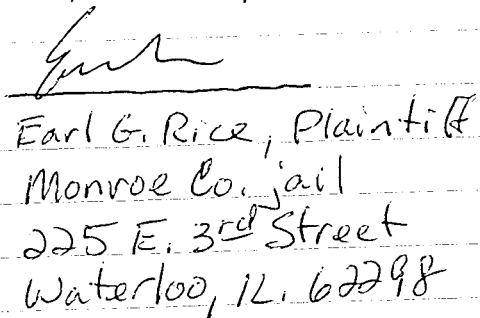 Earl G. Rice, Plaintiff
Monroe Co. jail
225 E. 3rd Street
Waterloo, IL. 62298